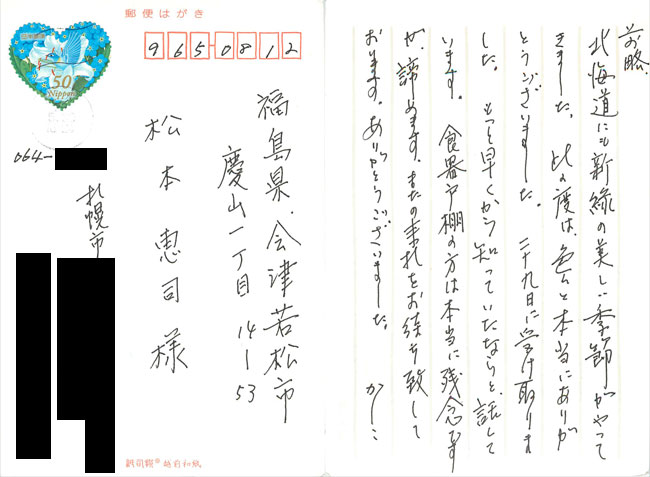 郵便はがき
965-0812
50
Nippon
福島県、会津若松市
慶山一丁目 14-53
松本恵司様
064-
札幌市
越前和紙
前略、
北海道にも新緑の美しい季節がやって
きました。此の度は、色々と本当にありが
とうございました。二十九日に受け取りま
した。もっと早くから知っていたならと、話して
います。食器戸棚の方は本当に残念です
が、諦めます。またの来札をお待ち致して
おります。ありがとうございました。かしこ